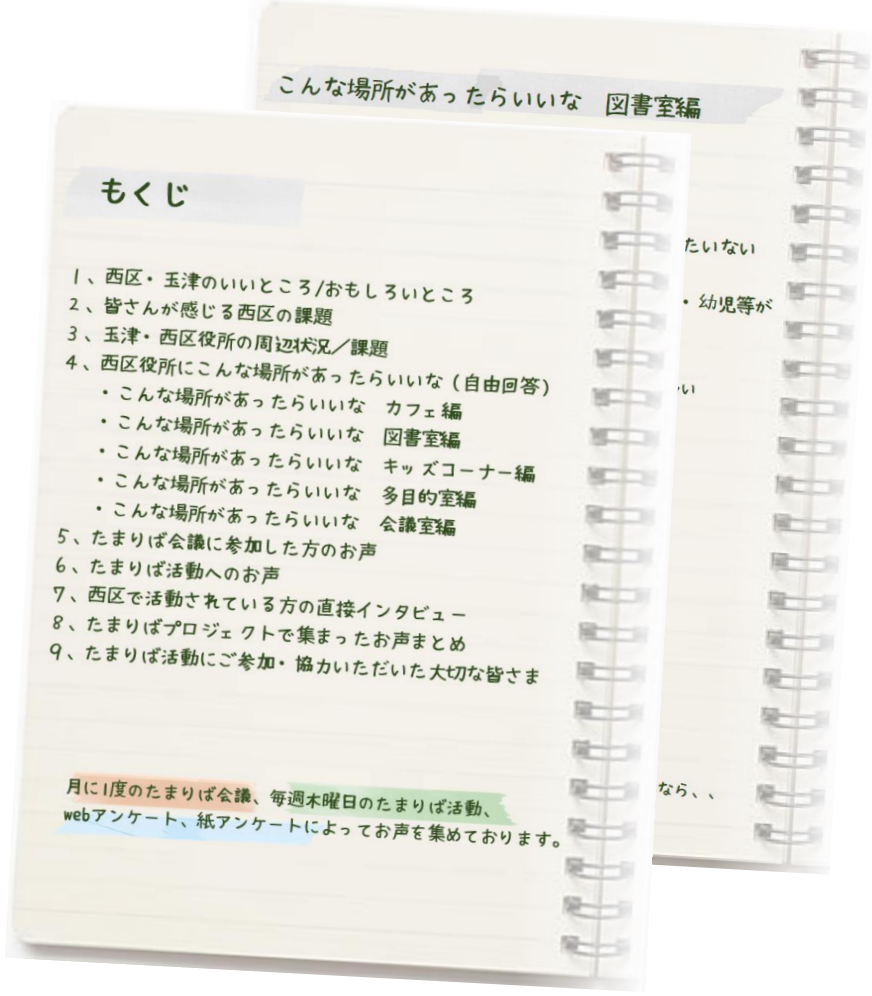 こんな場所があったらいいな　図書室編
たいない
・幼児等が
い
なら、、
もくじ
1、西区・玉津のいいところ/おもしろいところ
2、皆さんが感じる西区の課題
3、玉津・西区役所の周辺状況／課題
4、西区役所にこんな場所があったらいいな（自由回答）
・こんな場所があったらいいな　カフェ編
・こんな場所があったらいいな　図書室編
・こんな場所があったらいいな　キッズコーナー編
・こんな場所があったらいいな　多目的室編
・こんな場所があったらいいな　会議室編
5、たまりば会議に参加した方のお声
6、たまりば活動へのお声
7、西区で活動されている方の直接インタビュー
8、たまりばプロジェクトで集まったお声まとめ
9、たまりば活動にご参加・協力いただいた大切な皆さま
月に1度のたまりば会議、毎週木曜日のたまりば活動、
webアンケート、紙アンケートによってお声を集めております。